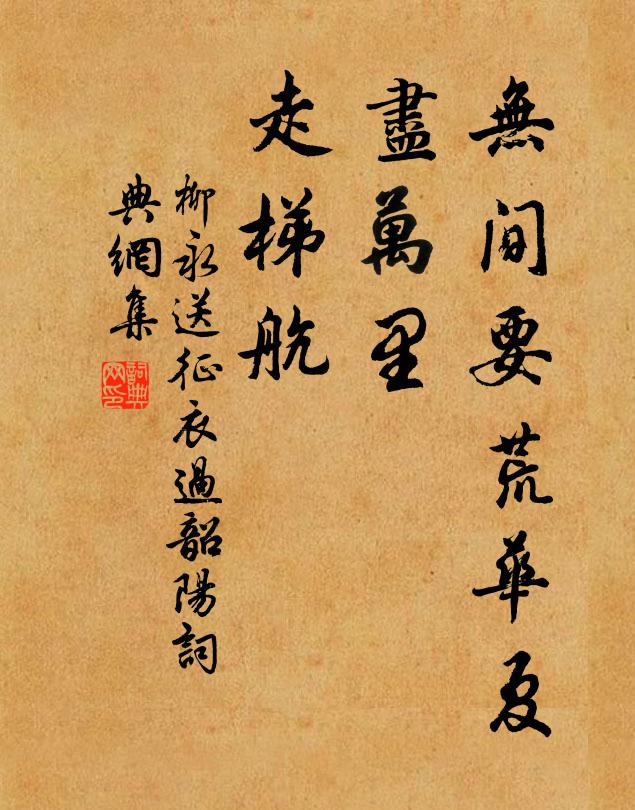 無閒要荒華夏
盡萬里
走梯航
柳永送征衣過韶陽詞
典網集
詞典
网印